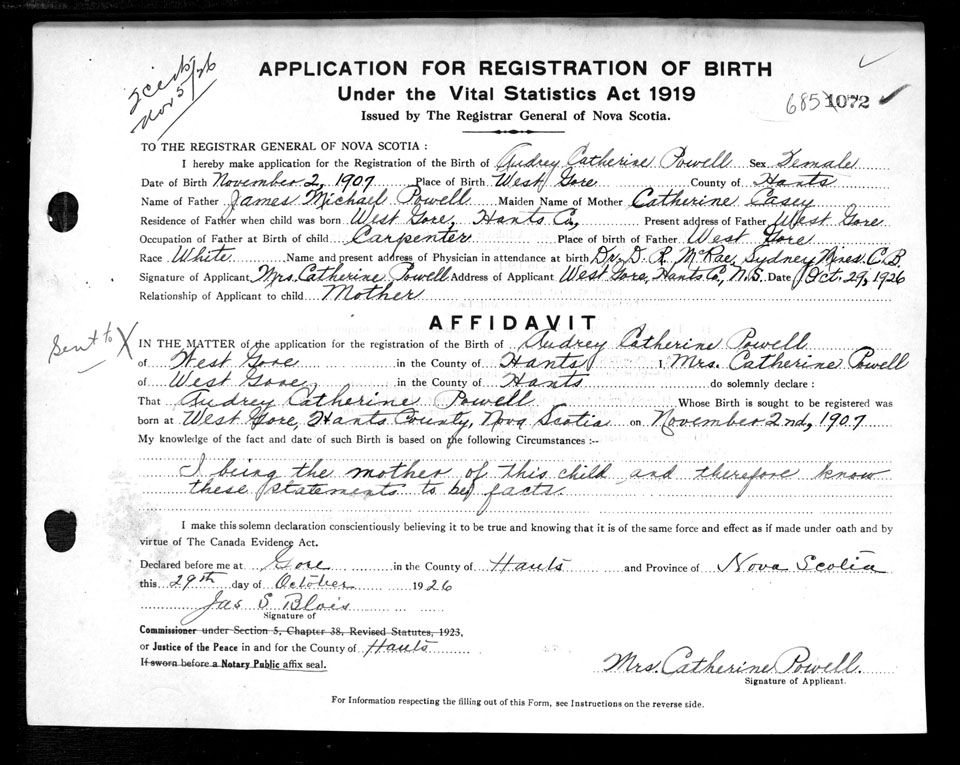 2 certs
Nov 5/26
APPLICATION FOR REGISTRATION OF BIRTH
Under the Vital Statistics Act 1919
Issued by The Registrar General of Nova Scotia.
685 1072
TO THE REGISTRAR GENERAL OF NOVA SCOTIA :
I hereby make application for the Registration of the Birth of Audrey Catherine Powell Sex Female
Date of Birth November 2, 1907 Place of Birth West Gore County of Hants
Name of Father James Michael Powell Maiden Name of Mother Catherine Casey
Residence of Father when child was born West Gore, Hants Co., Present address of Father West Gore
Occupation of Father at Birth of child Carpenter Place of birth of Father West Gore
Race White Name and present address of Physician in attendance at birth Dr. D. R. McRae, Sydney Mines. C.B
Signature of Applicant Mrs. Catherine Powell Address of Applicant West Gore, Hants Co., N.S. Date Oct. 29, 1926
Relationship of Applicant to child Mother
AFFIDAVIT
Sent to X
IN THE MATTER of the application for the registration of the Birth of Audrey Catherine Powell
of West Gore in the County of Hants I, Mrs. Catherine Powell
of West Gore, in the County of Hants do solemnly declare :
That Audrey Catherine Powell Whose Birth is sought to be registered was
born at West Gore, Hants County, Nova Scotia on November 2nd, 1907
My knowledge of the fact and date of such Birth is based on the following Circumstances :--
I being the mother of this child and therefore know
these statements to be facts.
I make this solemn declaration conscientiously believing it to be true and knowing that it is of the same force and effect as if made under oath and by
virtue of The Canada Evidence Act.
Declared before me at Gore in the County of Hants and Province of Nova Scotia
this 29th day of October 1926
Jas S Blois
Signature of
Commissioner under Section 5, Chapter 38, Revised Statutes, 1923,
or Justice of the Peace in and for the County of Hants
If sworn before a Notary Public affix seal.
Mrs. Catherine Powell
Signature of Applicant.
For Information respecting the filling out of this Form, see Instructions on the reverse side.